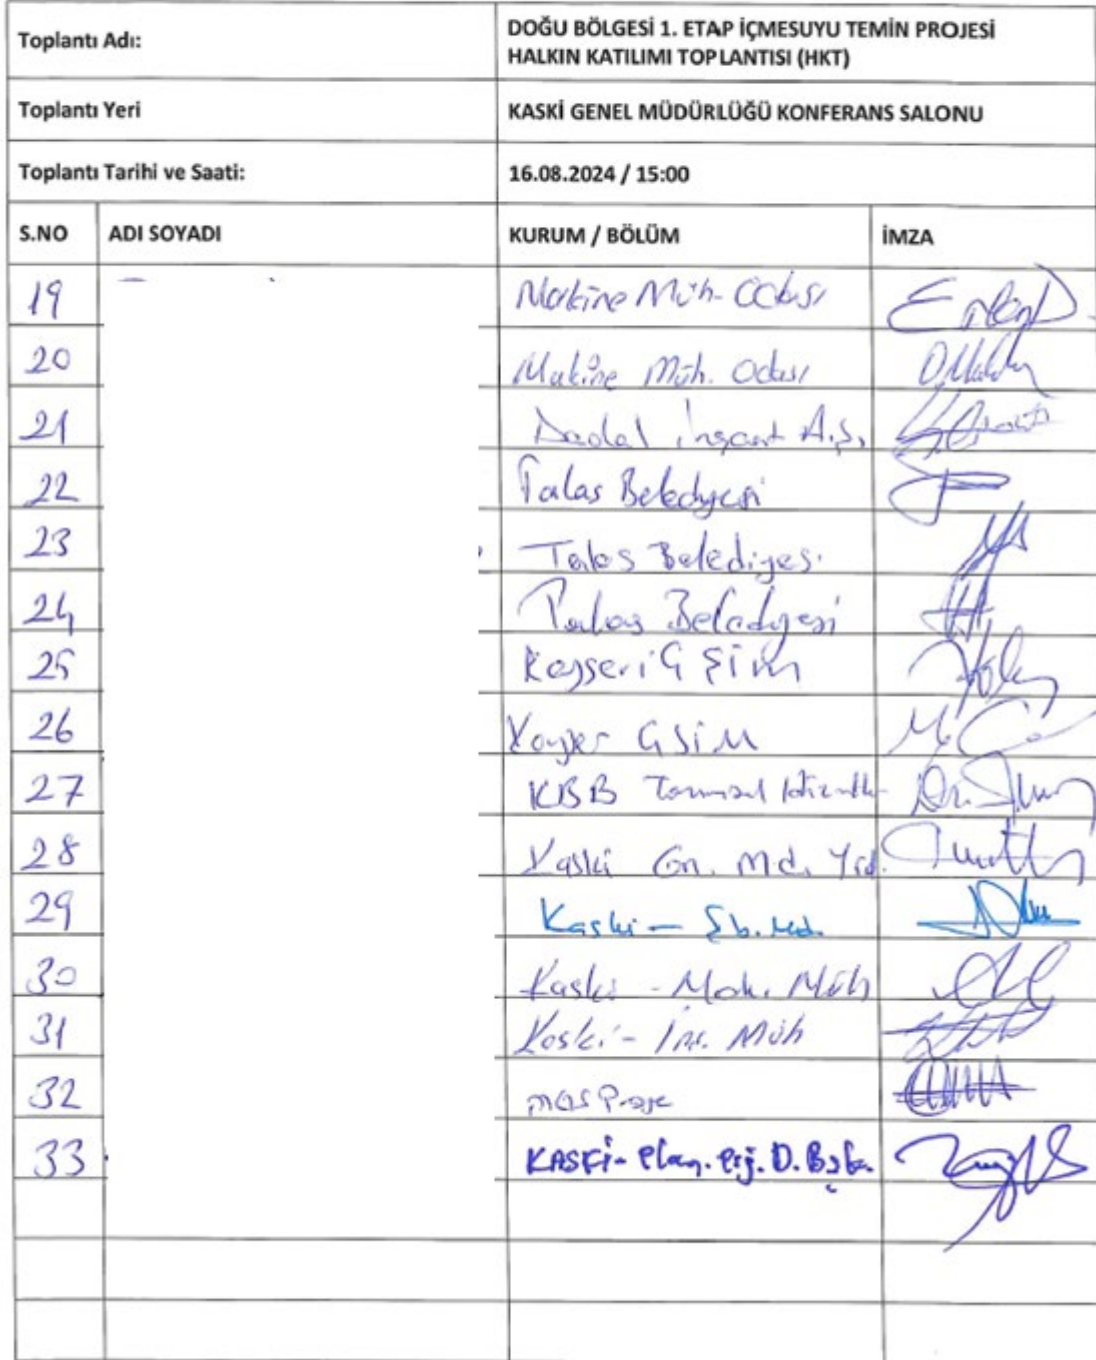 Toplantı Adı: DOĞU BÖLGESİ 1. ETAP İÇMESUYU TEMİN PROJESİ
HALKIN KATILIMI TOPLANTISI (HKT)
Toplantı Yeri KASKİ GENEL MÜDÜRLÜĞÜ KONFERANS SALONU
Toplantı Tarihi ve Saati: 16.08.2024 / 15:00
S.NO ADI SOYADI KURUM / BÖLÜM İMZA
19 Makine Müh. Odası
20 Makine Müh. Odası
21 Dadal İnşaat A.Ş.
22 Talas Belediyesi
23 Talas Belediyesi
24 Talas Belediyesi
25 Kayseri GSİM
26 Kayseri GSİM
27 KBB Tarımsal
28 Kaski Gn. Md. Yrd.
29 Kaski - Şb. Md.
30 Kaski - Mak. Müh
31 Kaski - İnş. Müh
32 mas Proje
33 KASKİ - Plan. Prj. D. Bşk.